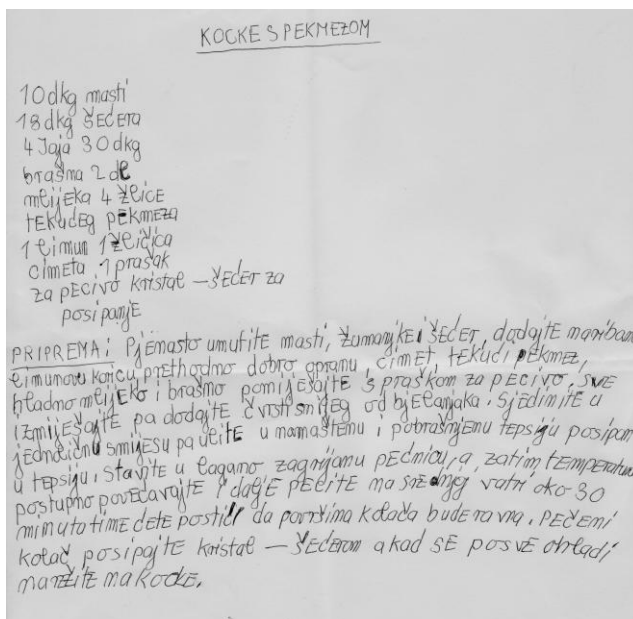 KOCKE S PEKMEZOM
10 dkg masti
18 dkg šećera
4 Jaja 30 dkg
brašna 2 dl
mlijeka 4 žlice
tekućeg pekmeza
1 limun 1 žličica
cimeta 1 prašak
za pecivo kristal – šećer za
posipanje
PRIPREMA: Pjenasto umutite masti, žumanjke i šećer, dodajte naribanu
limunovu koricu prethodno dobro opranu, cimet, tekući pekmez,
hladno mlijeko i brašno pomiješajte s praškom za pecivo. Sve
izmiješajte pa dodajte čvrsti snijeg od bjelanjaka. Sjedinite u
jedničnu smijesu pa ulite u namašćenu i pobrašnjenu tepsiju posipan
u tepsiju. Stavite u lagano zagrijanu pećnicu, a zatim temperaturu
postupno povećavajte i dalje pecite na srednjoj vatri oko 30
minuta time ćete postići da površina kolača bude ravna. Pečeni
kolač posipajte kristal – šećerom a kad se posve ohladi
narežite na kocke.